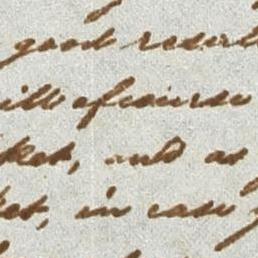 good resul
ill of course
ket, and as
et, in case